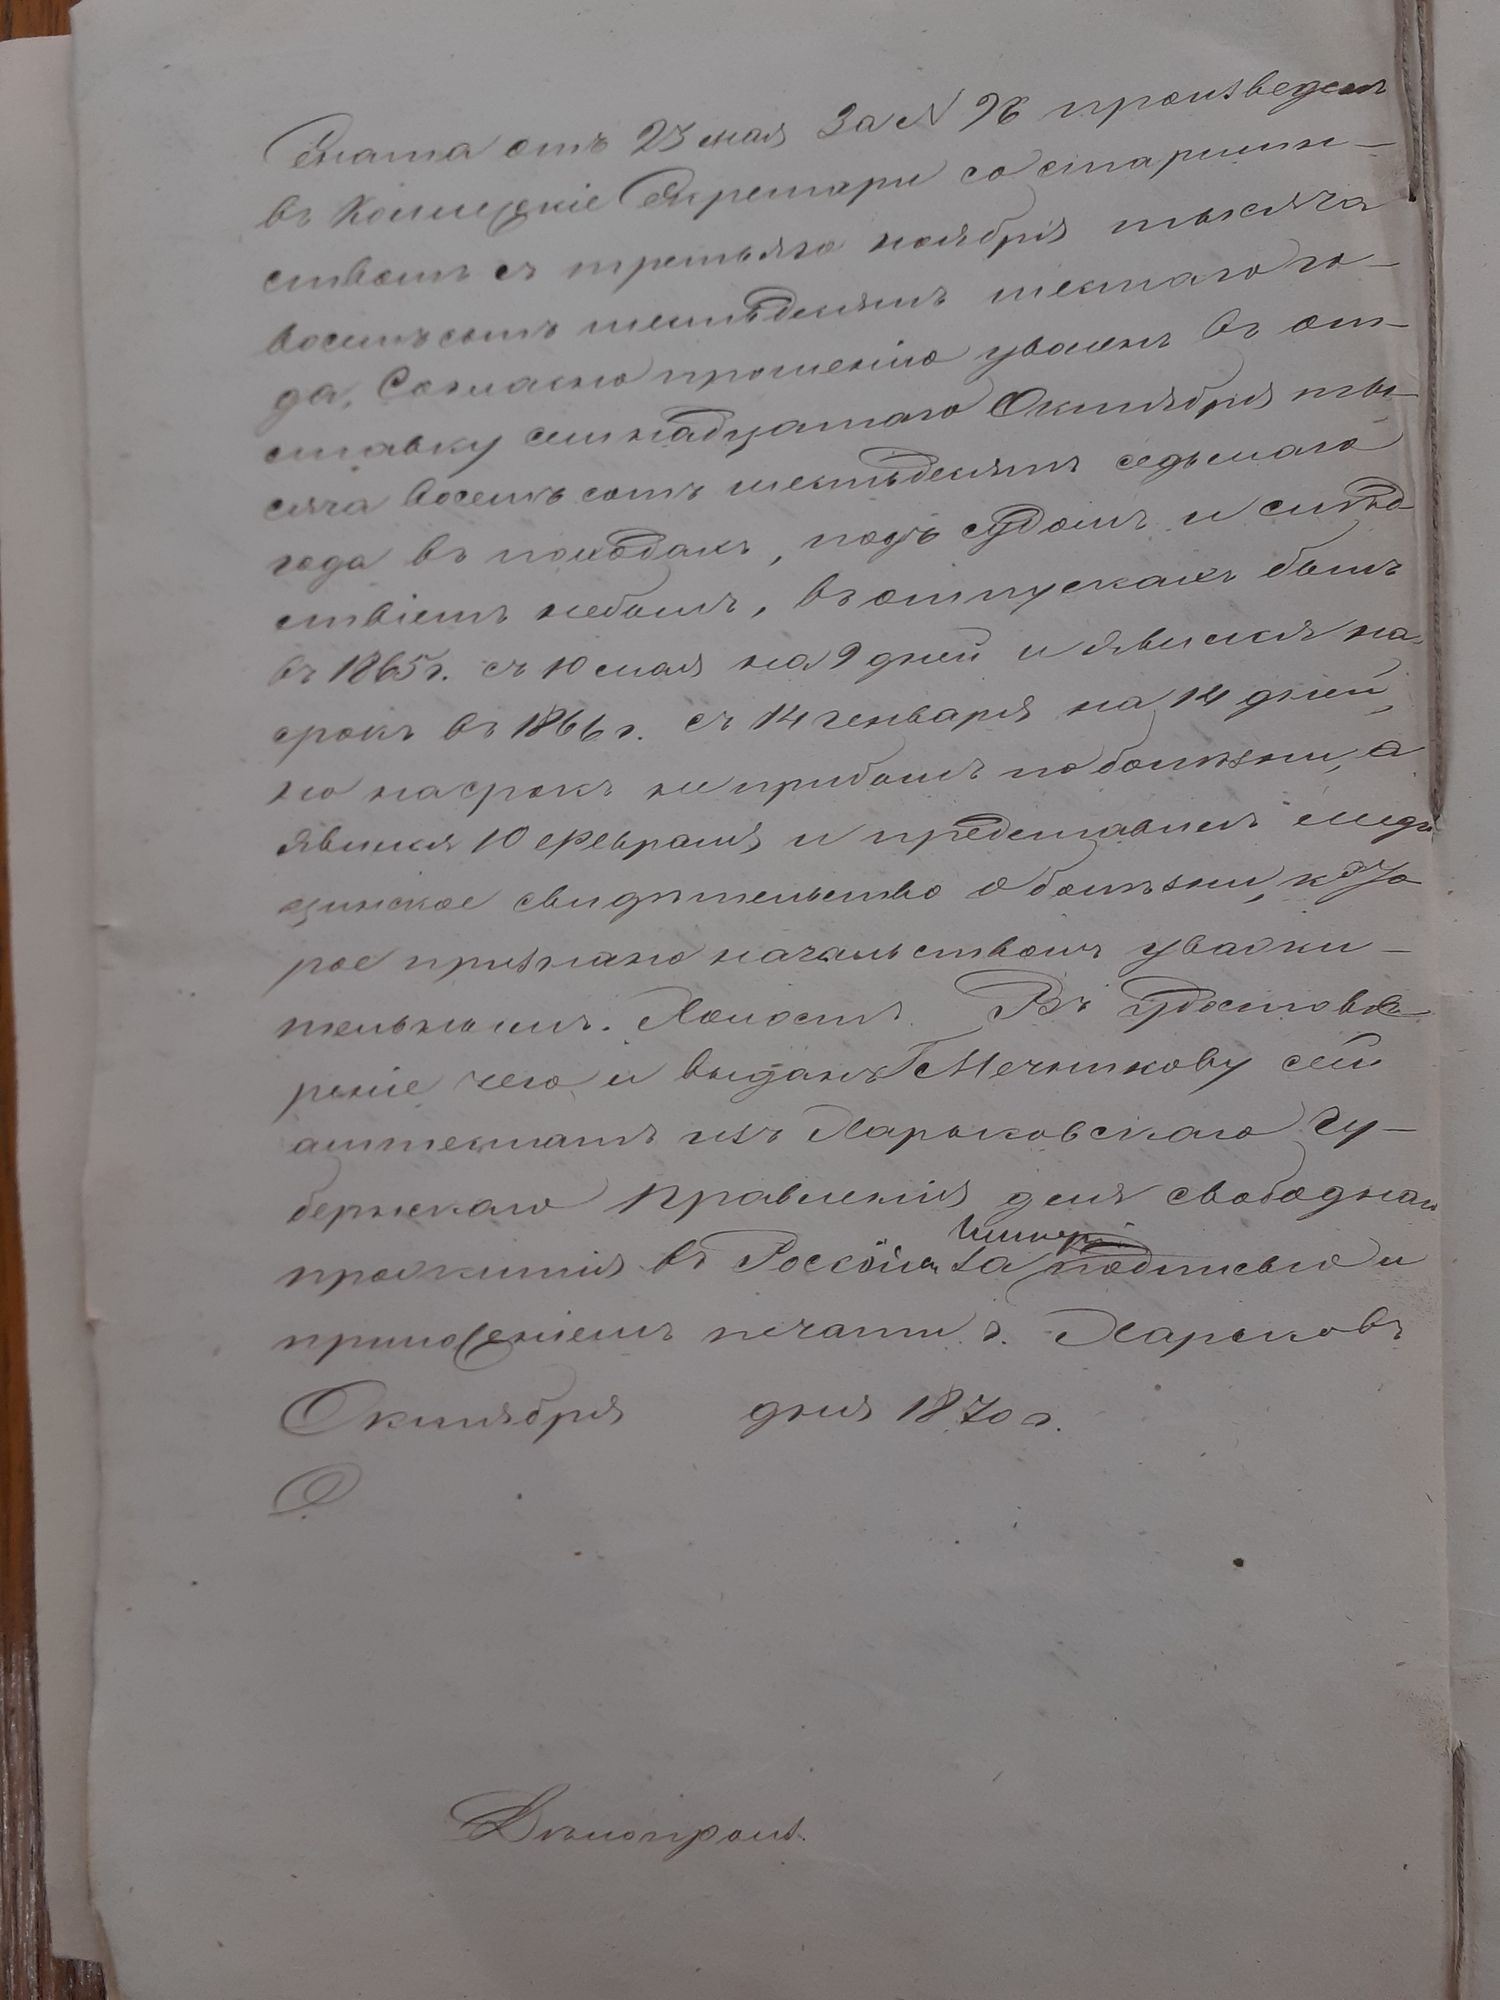 Сената отъ 23 мая За № 96 произведенъ
въ Коллежскіе Секретари со старшин-
ствомъ съ третьяго ноября тысяча
восемьсотъ шестьдесятъ шестаго го-
да, Согласно прошенію уволенъ въ от-
ставку семнадцатаго Октября ты-
сяча восемьсотъ шестьдесятъ седьмаго
года въ походахъ, подъ судомъ и слѣд-
ствіемъ небылъ, въ отпускахъ былъ
въ 1865 г. съ 10 мая на 9 дней и явился на
срокъ въ 1866 г. съ 14 генваря на 14 дней,
но на срокъ не прибылъ по болѣзни, а
явился 10 февраля и представилъ меди
цинское свидѣтельство о болѣзни, кото
рое признано начальствомъ уважи-
тельнымъ. Холостъ. Въ удостовѣ
реніе чего и выданъ Г Мечникову сей
аттестатъ изъ Харьковскаго Гу-
бернскаго Правленія для свободнаго
прожитія въ Россійск Импер за подписью и
приложеніемъ печати г. Харьковъ
Октября дня 1870 г.
Дѣлопроиз.